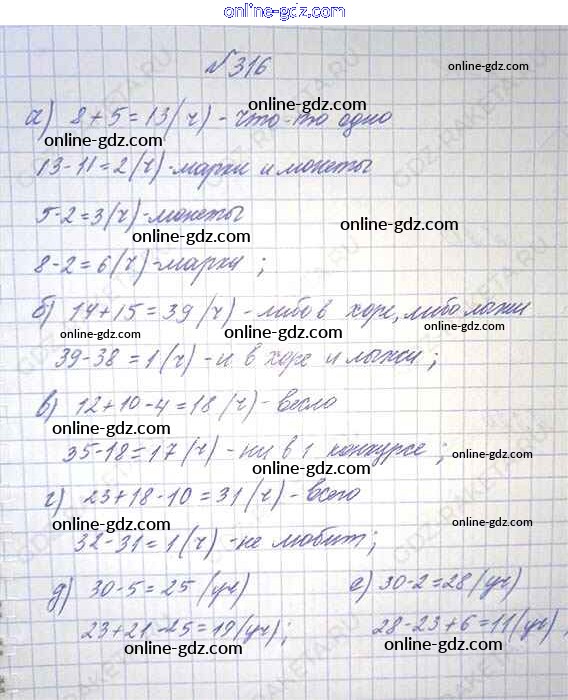 online-gdz.com
№316
online-gdz.com
online-gdz.com
а) 8+5=13(ч) - что-то одно
online-gdz.com
13-11=2(ч) - марки и монеты
5-2=3(ч) - монеты
online-gdz.com
online-gdz.com
8-2=6(ч) - марки;
б) 14+15=39(ч) - либо в хоре, либо лыжи
online-gdz.com
online-gdz.com
39-38=1(ч) - и в хоре и лыжи;
в) 12+10-4=18(ч) - всего
online-gdz.com
35-18=17(ч) - ни в 1 конкурсе;
online-gdz.com
online-gdz.com
г) 23+18-10=31(ч) - всего
online-gdz.com
online-gdz.com
32-31=1(ч) - не любит;
online-gdz.com
online-gdz.com
д) 30-5=25(уч) е) 30-2=28(уч)
23+21-25=19(уч); 28-23+6=11(уч)
online-gdz.com
online-gdz.com
online-gdz.com